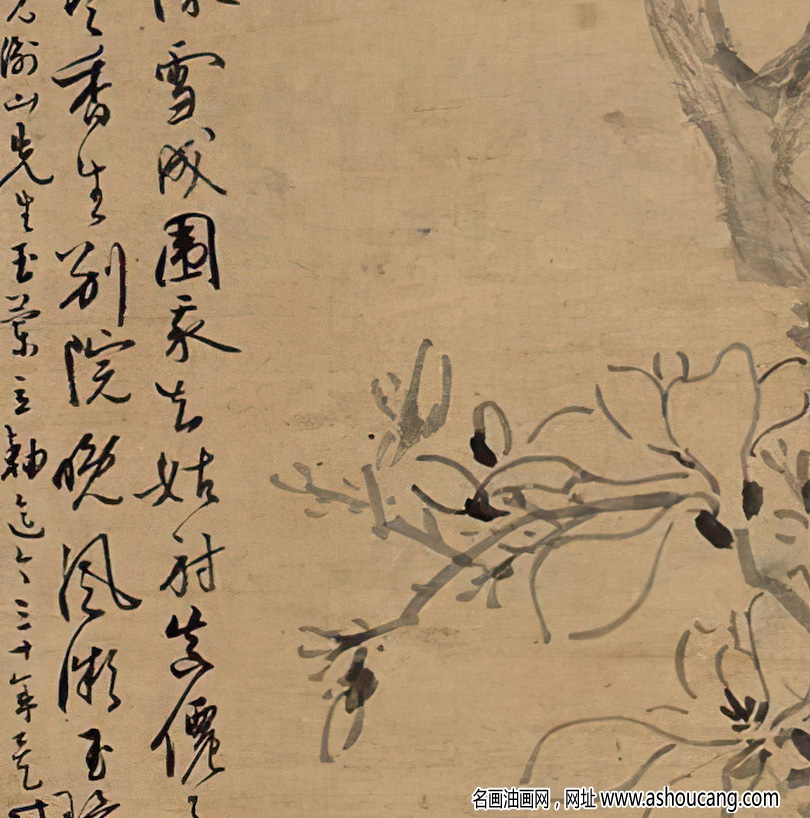 雪成圍我知姑射真僊
香生別院晚風微玉環
衡山先生玉蘭立軸迄今三十年矣
名画油画网，网址 www.ashoucang.com